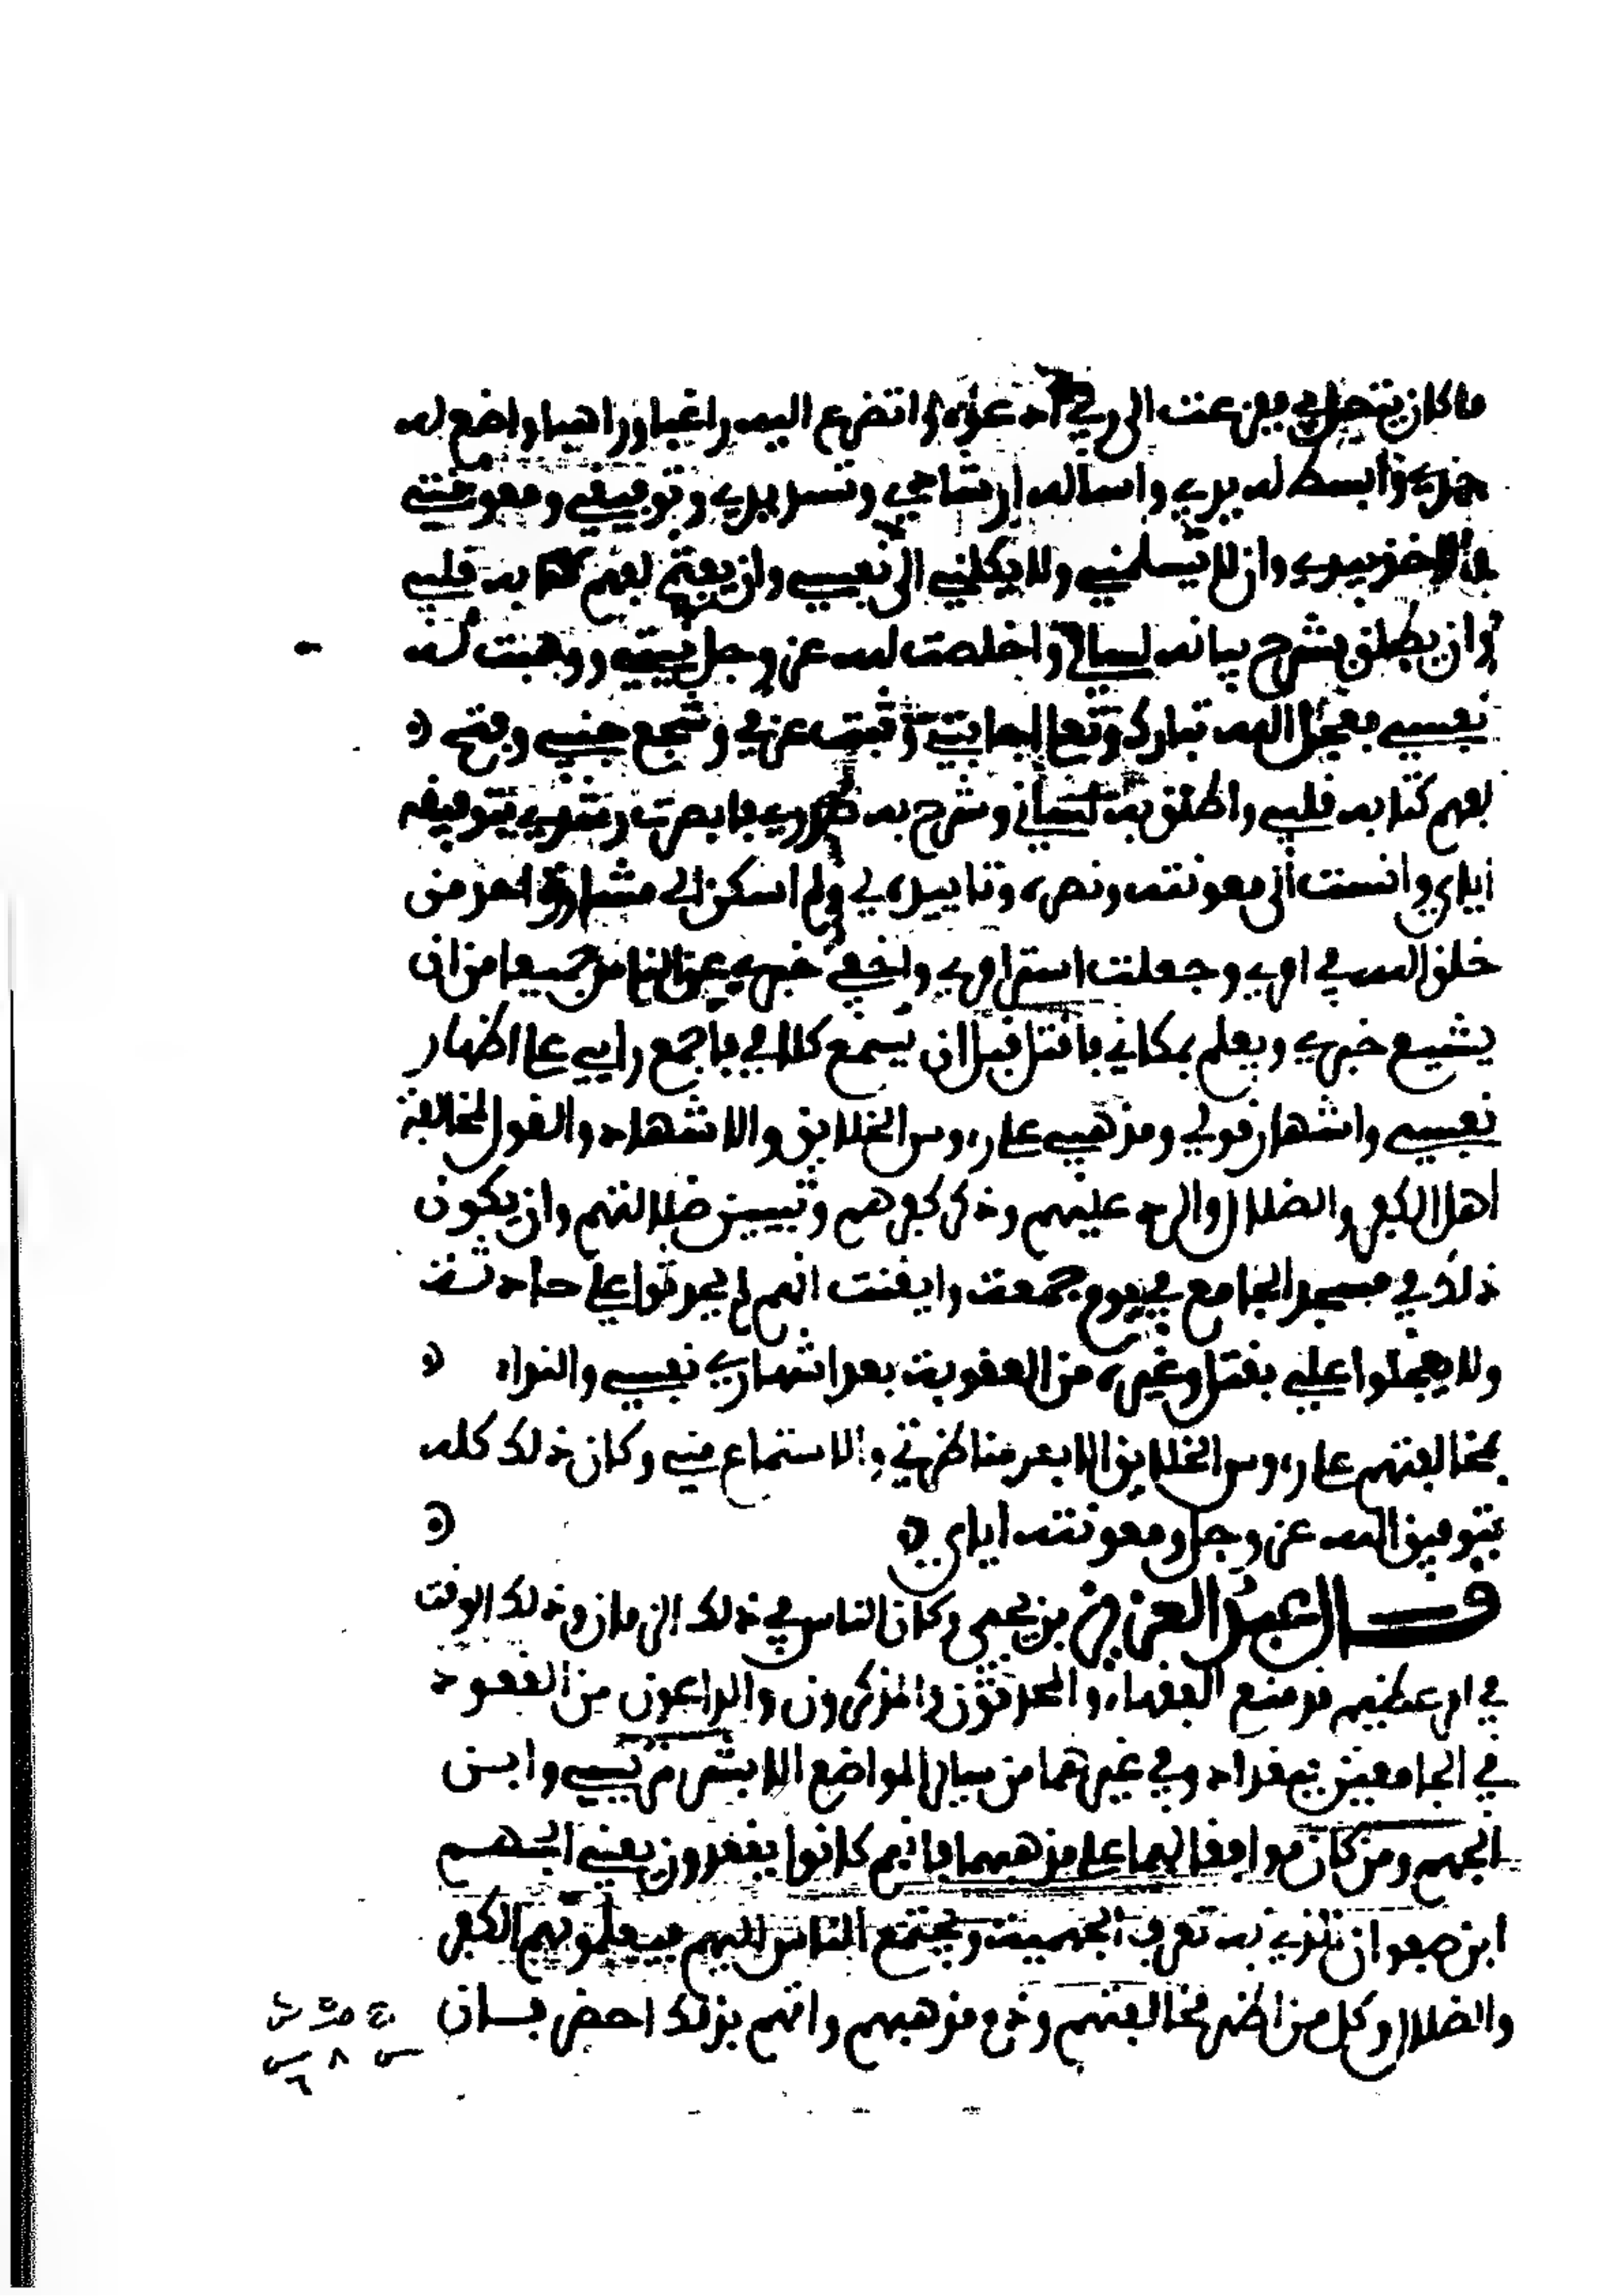 ما كان يتحمل بي ففزعت الى ربي ادعوه واتضرع اليه راغبا وراهبا واضع له
خدي وابسط له يدي واساله ارشادي وتسديدي وتوفيقي ومعونتي
والاخذ بيدي وان لا يسلمني ولا يكلني الى نفسي وان يفتح لفهم كتابه قلبي
وان يطلق بشرح بيانه لساني واخلصت لله عز وجل نيتي ووهبت له
نفسي فعجل الله تبارك وتعالى اجابتي وثبت عزمي وشجع جنبي وفتح
لفهم كتابه قلبي واطلق به لساني وشرح به صدري فابصرت رشدي بتوفيقه
اياي وانست الى معونته ونصره وتاييده لي ولم اسكن الى مشاورة احد من
خلق الله في امري وجعلت استر امري واخفي خبري عن الناس جميعا من ان
يشيع خبري ويعلم بمكاني فاقتل قبل ان يسمع كلامي فاجمع رايي على اظهار
نفسي واشهار قولي ومذهبي على رءوس الخلايق والاشهاد والقول لمخالفة
اهل الكفر والضلال والرد عليهم وذكر كفرهم وتبيين ضلالتهم وان يكون
ذلك في مسجد الجامع في يوم جمعة وايقنت انهم لم يحدثوا علي حادثة
ولا يعجلوا علي بقتل وغيره من العقوبة بعد اشهاري نفسي والنداء
بمخالفتهم على رءوس الخلايق الا بعد مناظرتي والاستماع مني وكان ذلك كله
بتوفيق الله عز وجل ومعونته اياي
قال عبد العزيز بن يحيى وكان الناس في ذلك الزمان وذلك الوقت
في امر عظيم قد منع الفقهاء والمحدثون والمذكرون والداعون من القعود
في الجامعين ببغداد وفي غيرهما من ساير المواضع الا بشر مريسي وابن
الجهم ومن كان موافقا لهما على مذهبهما فانهم كانوا يقعدون يعني الجهم
ابن صفوان الذي به تعرف الجهمية ويجتمع الناس اليهم فيعلمونهم الكفر
والضلال وكل من اظهر مخالفتهم وذم مذهبهم واتهم بذلك احضر فان